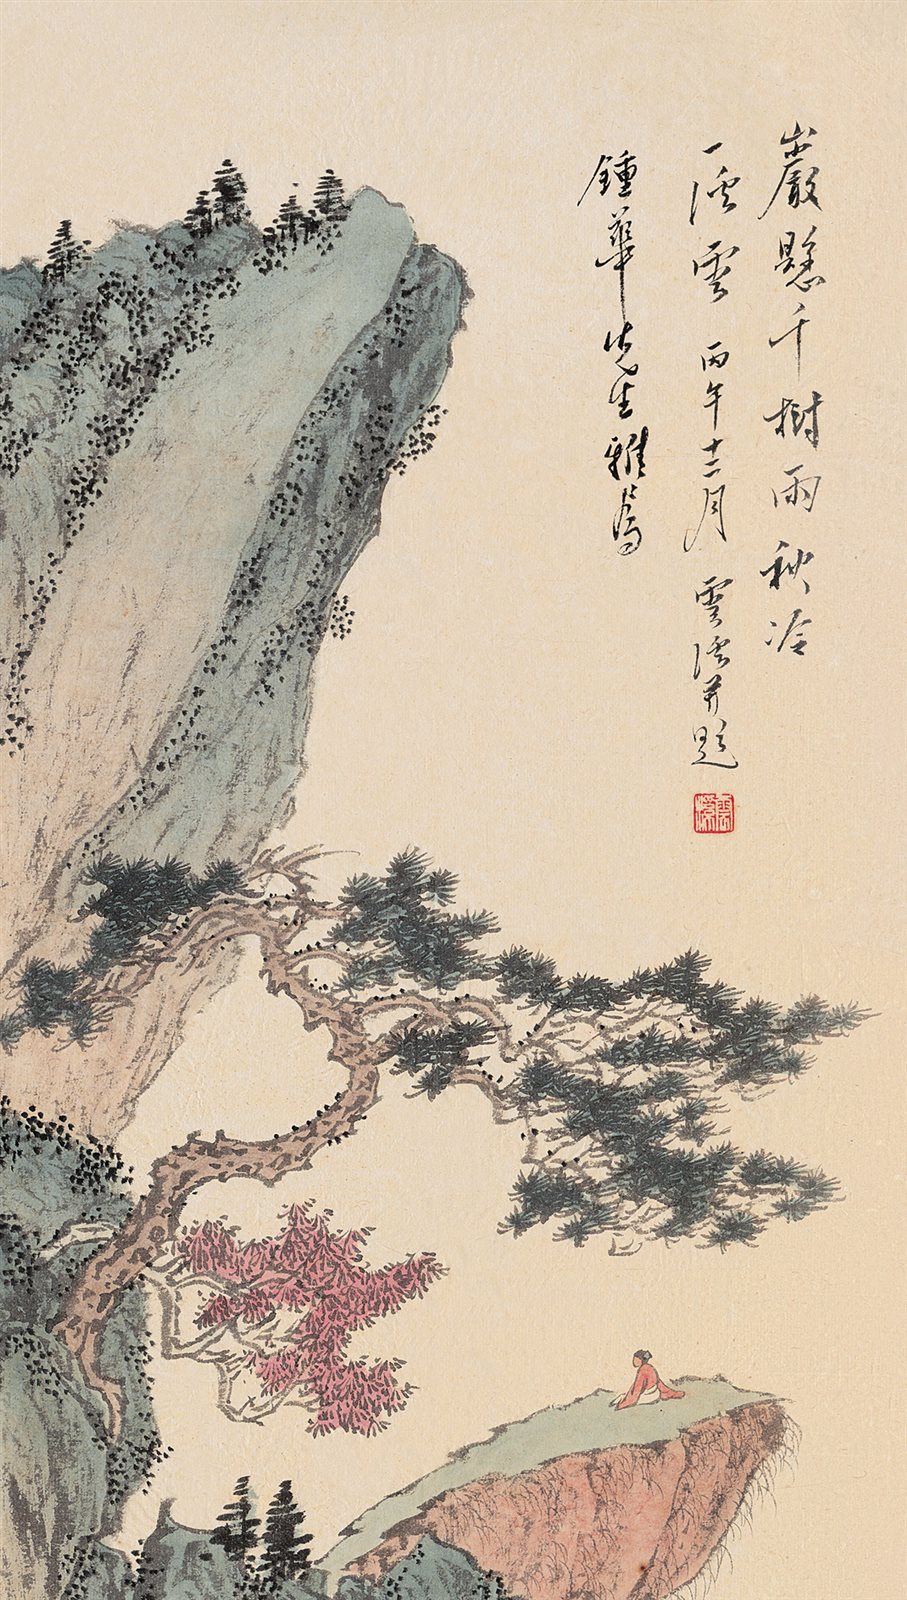 巖懸千樹雨秋冷
一溪雲丙午十二月雲溪并題
鍾華先生雅屬
雲溪